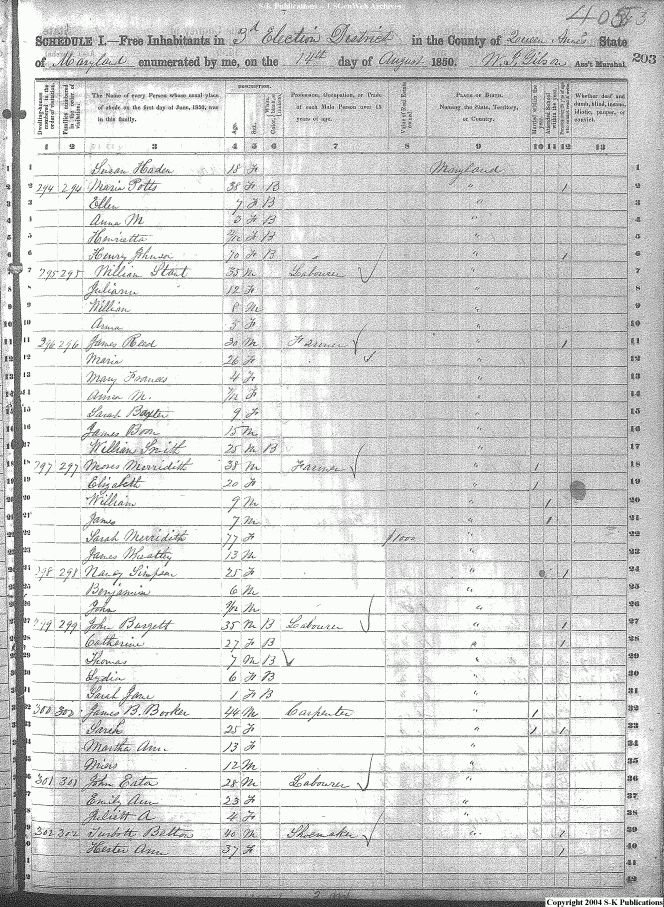 S-K Publications - USGenWeb Archives
405 203
SCHEDULE I.—Free Inhabitants in 3d Election District in the County of Queen Anns State
of Maryland enumerated by me, on the 14th day of August 1850. Ass't Marshal 203
Dwelling-houses numbered in the order of visitation. Families numbered in the order of visitation. The Name of every Person whose usual place of abode on the first day of June, 1850, was in this family. DESCRIPTION. Age. Sex. White, Color, black, or mulatto. Profession, Occupation, or Trade of each Male Person over 15 years of age. Value of Real Estate owned. PLACE OF BIRTH. Naming the State, Territory, or Country. Married within the year. Attended School within the year. Whether deaf and dumb, blind, insane, idiotic, pauper, or convict.
1 2 3 4 5 6 7 8 9 10 11 12 13
1 Susan Haden 18 F Maryland 1
2 294 294 Maria Potts 38 F B " 1 2
3 Ellen 7 F B " 3
4 Anna M 3 F B " 4
5 Henrietta F B " 5
6 Henry Johnson 70 F B " 1 6
7 295 295 William Start 35 M Labourer " 7
8 Juliann 12 F " 8
9 William 8 M " 9
10 Anna 5 F " 10
11 296 296 James Reed 30 M Farmer " 1 11
12 Maria 26 F " 12
13 Mary Frances 4 F " 13
14 Anna M. F " 14
15 Sarah Baxter 9 F " 15
16 James Boon 15 M " 16
17 William Smith 25 M B " 17
18 297 297 Moses Merridith 38 M Farmer " 1 18
19 Elizabeth 20 F " 1 19
20 William 9 M " 1 20
21 James 7 M " 1 21
22 Sarah Merridith 77 F $1000 " 22
23 James Wheatley 13 M " 23
24 298 298 Nancy Simpson 25 F " 1 24
25 Benjamin 6 M " 25
26 John M " 26
27 299 299 John Burgett 35 M B Labourer " 1 27
28 Catharine 27 F B " 1 28
29 Thomas 7 M B " 29
30 Lydia 6 F B " 30
31 Sarah Jane 1 F B " 31
32 300 300 James B. Booker 44 M Carpenter " 1 32
33 Sarah 25 F " 1 1 33
34 Martha Ann 13 F " 34
35 12 M " 35
36 301 301 John Eaton 28 M Labourer " 36
37 Emily Ann 23 F " 37
38 Juliett A 4 F " 38
39 302 302 40 M Shoemaker " 1 39
40 Hester Ann 37 F " 1 40
41
42
Copyright 2004 S-K Publications